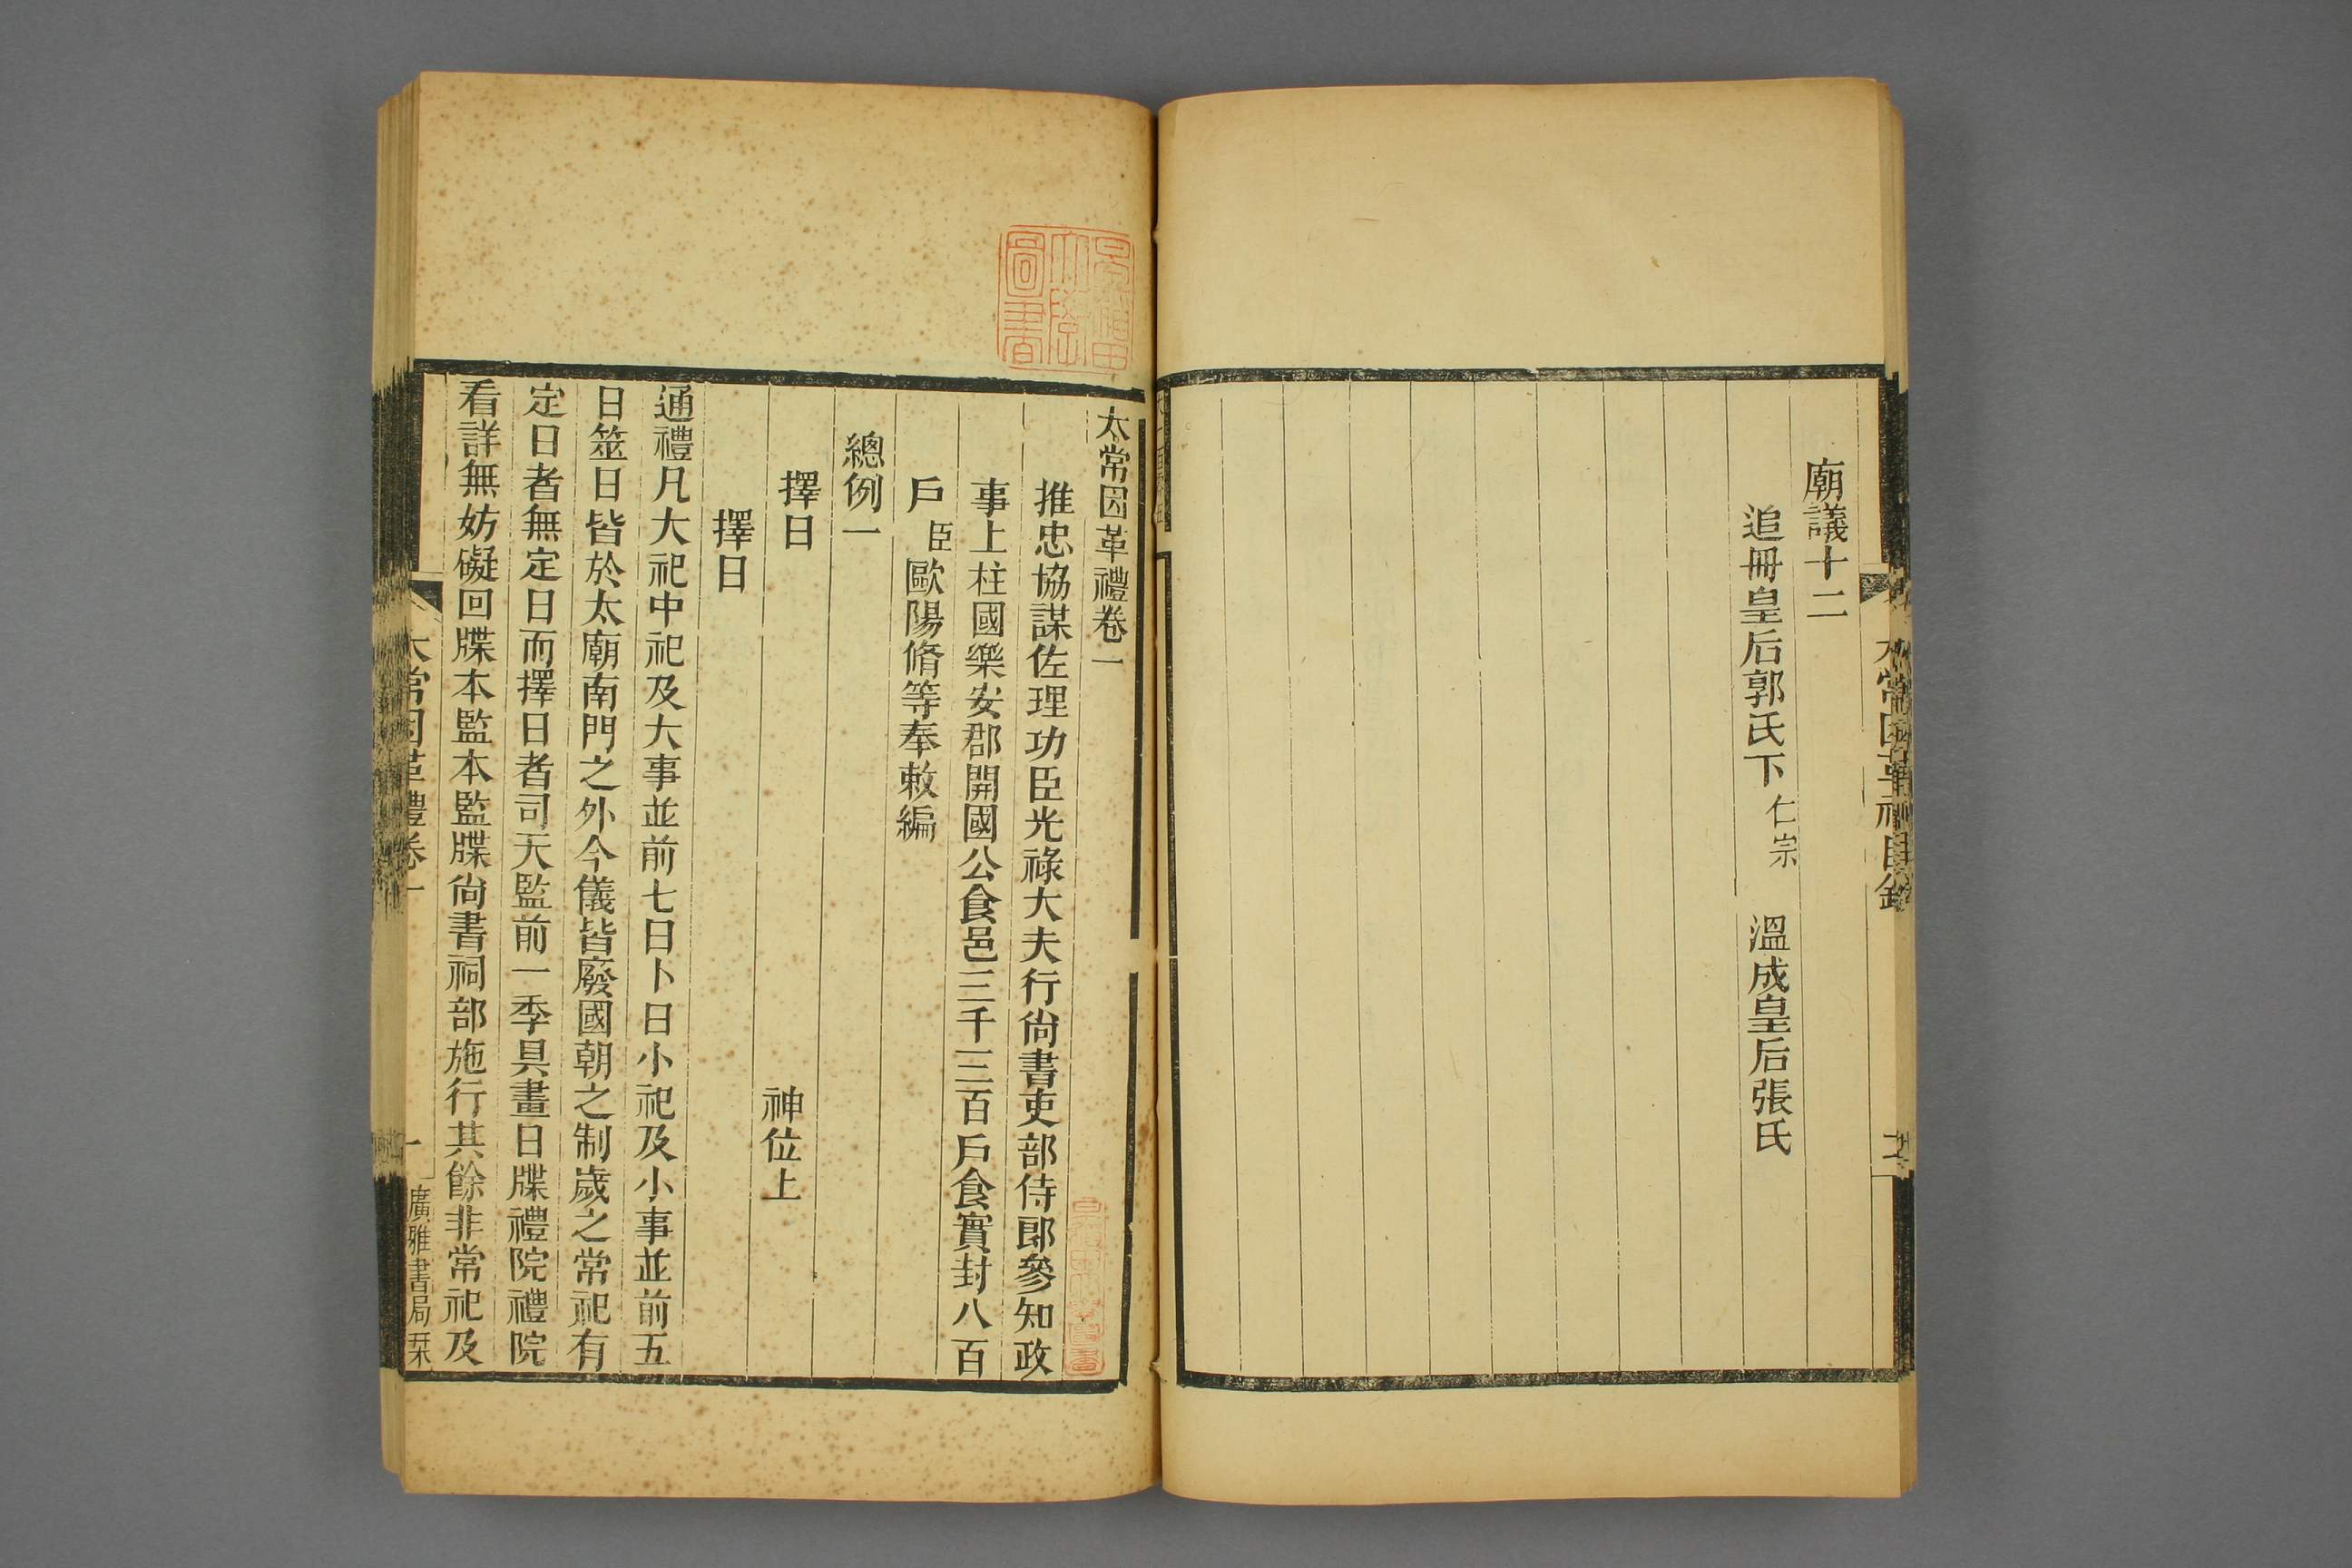 廟議十二
追冊皇后郭氏下仁宗 溫成皇后張氏
太常因革禮卷一
推忠協謀佐理功臣光祿大夫行尙書吏部侍郎參知政
事上柱國樂安郡開國公食邑三千三百戶食實封八百
戶臣歐陽脩等奉敕編
總例一
擇日 神位上
擇日
通禮凡大祀中祀及大事並前七日卜日小祀及小事並前五
日筮日皆於太廟南門之外今儀皆廢國朝之制歲之常祀有
定日者無定日而擇日者司天監前一季具畫日牒禮院禮院
看詳無妨礙回牒本監本監牒尙書祠部施行其餘非常祀及
太常因革禮卷一
一
廣雅書局栞